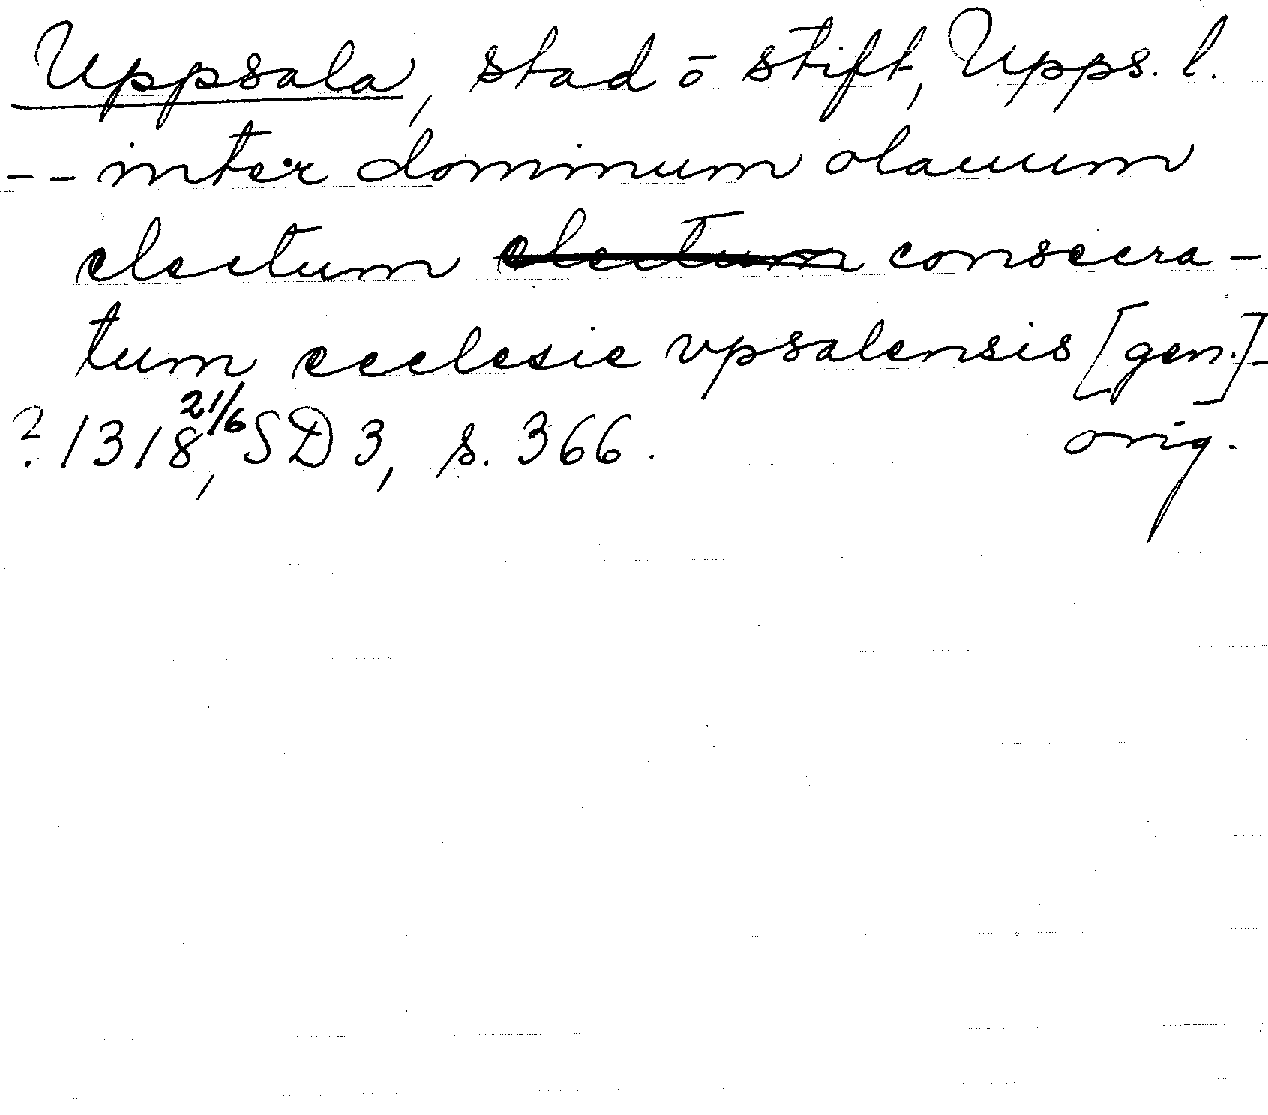 Uppsala, stad ō stift, Upps. l.
-- inter dominum olauum
electum electum consecra-
tum ecclesie vpsalensis [gen.]-
? 1318 21/6, SD 3, s. 366. orig.